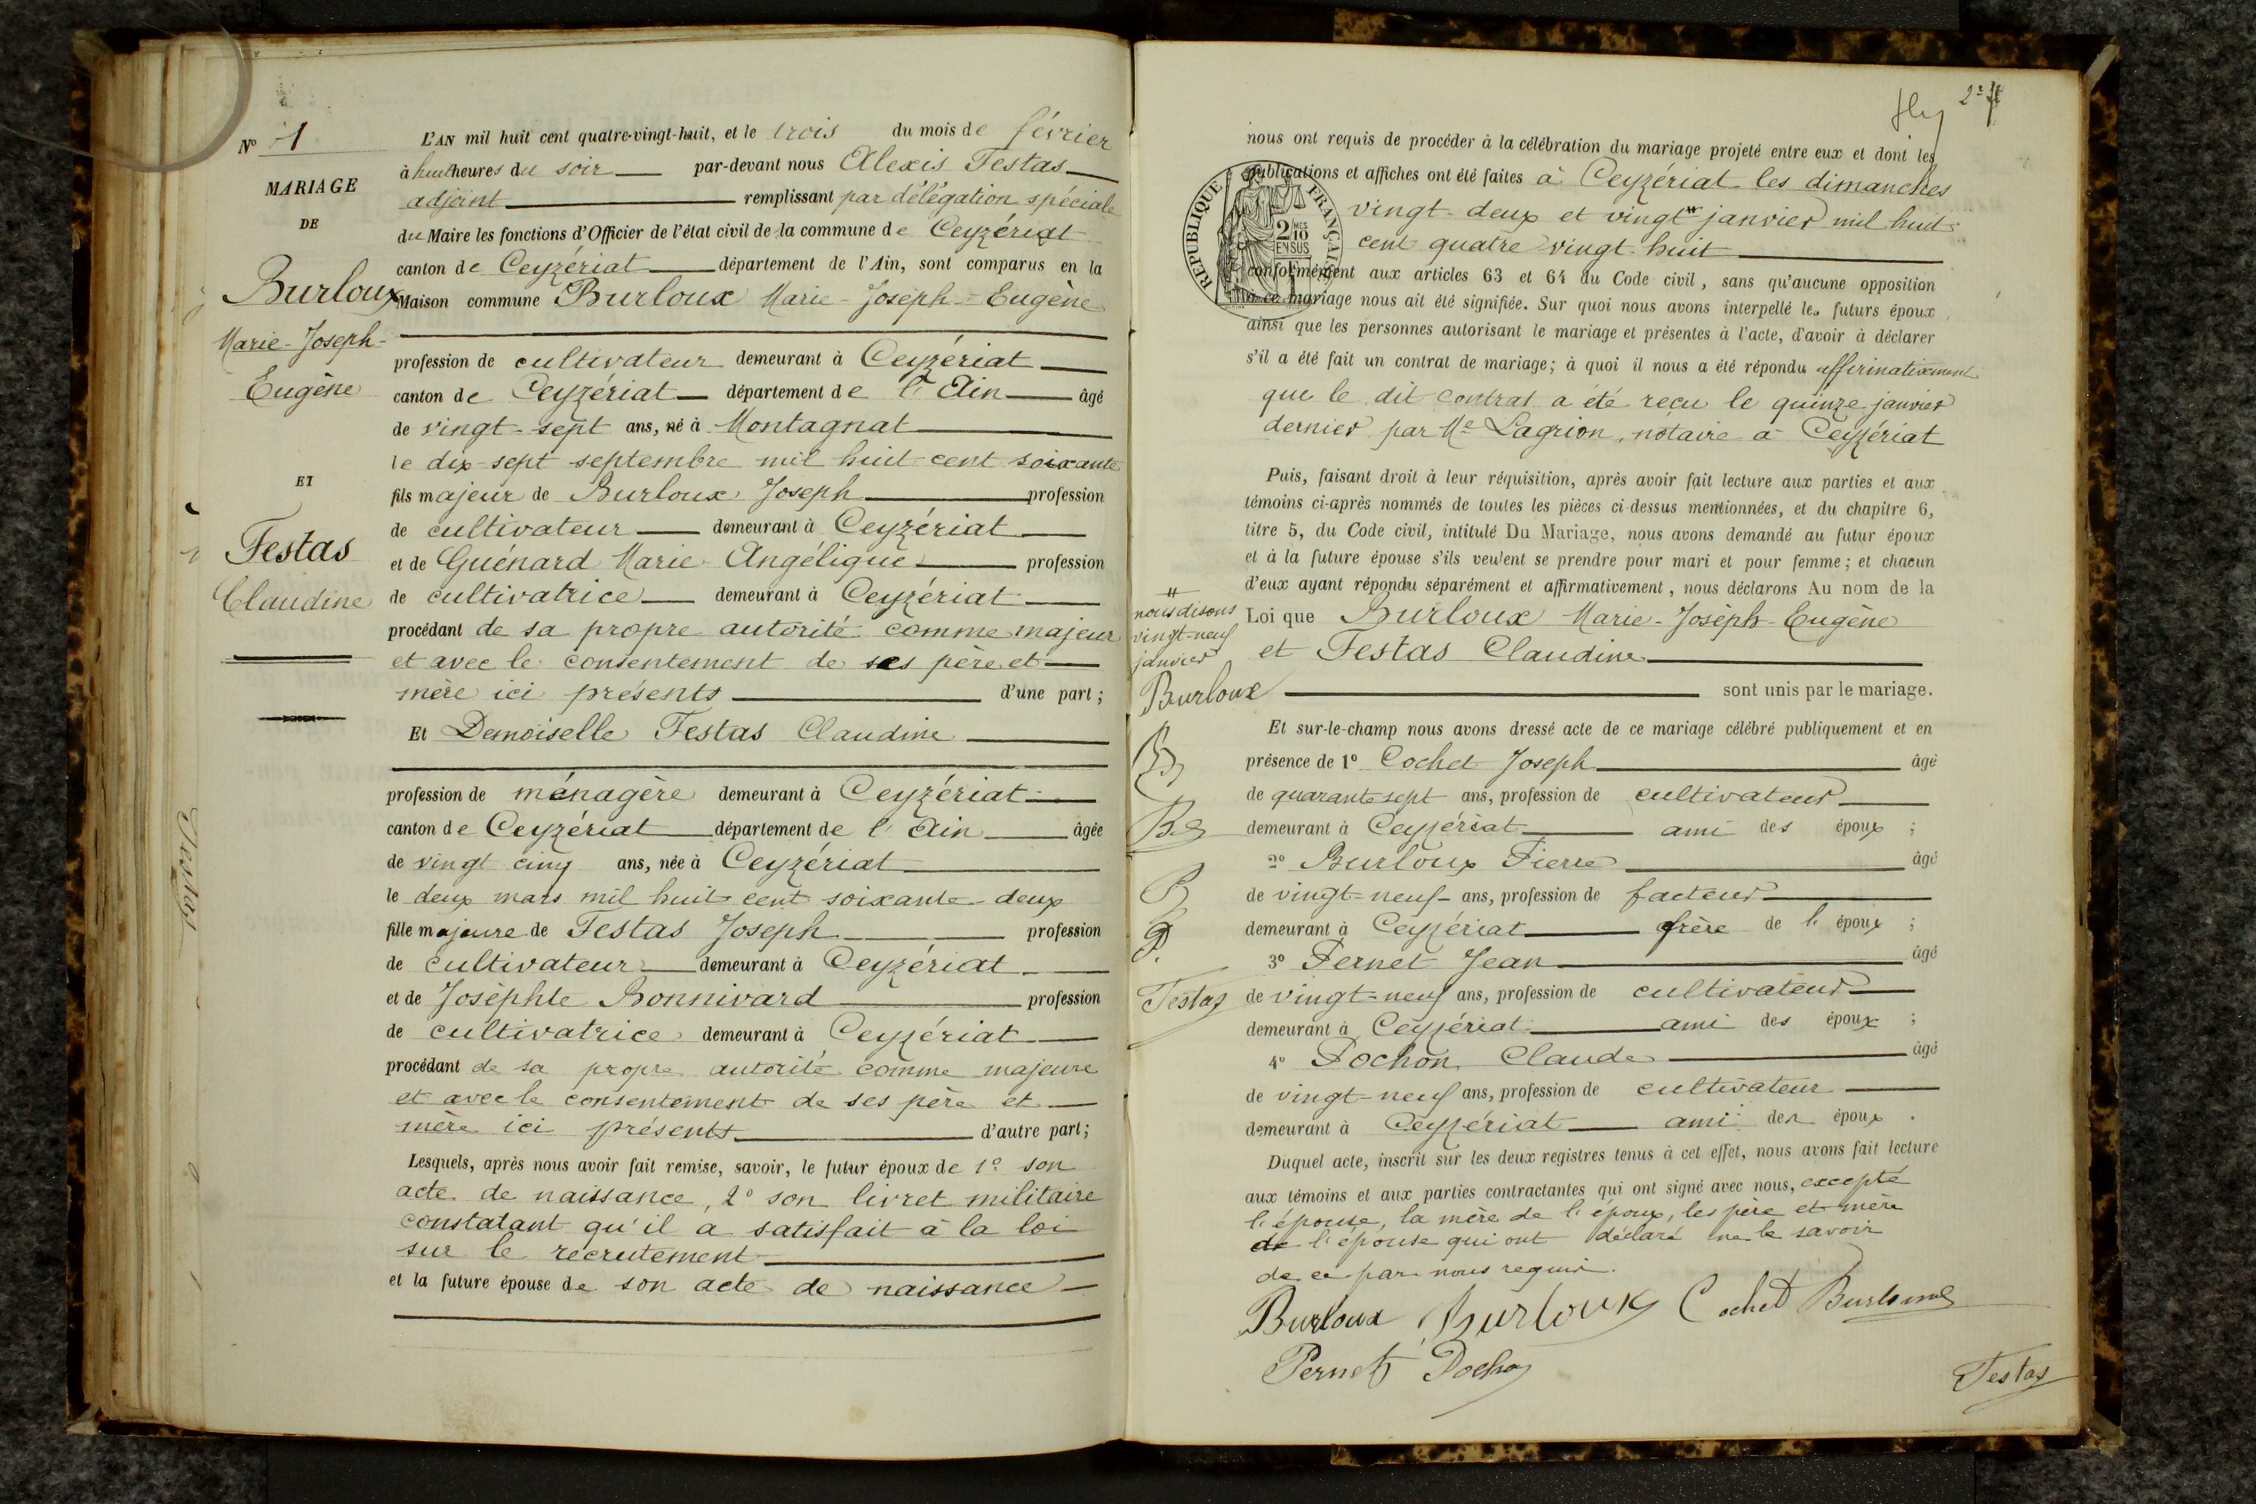 N° 1
MARIAGE
DE
Burloux
Marie-Joseph-
Eugène
ET
Testas
Claudine
L'AN mil huit cent quatre-vingt-huit, et le trois du mois de février
à huit heures du soir par-devant nous Alexis Testas
adjoint remplissant par délégation spéciale
du Maire les fonctions d'Officier de l'état civil de la commune de Ceyzériat
canton de Ceyzériat département de l'Ain, sont comparus en la
Maison commune Burloux Marie-Joseph-Eugène
profession de cultivateur demeurant à Ceyzériat
canton de Ceyzériat département de l'Ain âgé
de vingt-sept ans, né à Montagnat
le dix-sept septembre mil huit cent soixante
fils majeur de Burloux Joseph profession
de cultivateur demeurant à Ceyzériat
et de Guénard Marie Angélique profession
de cultivatrice demeurant à Ceyzériat
procédant de sa propre autorité comme majeur
et avec le consentement de ses père et
mère ici présents d'une part;
Et Demoiselle Testas Claudine
profession de ménagère demeurant à Ceyzériat
canton de Ceyzériat département de l'Ain âgée
de vingt cinq ans, née à Ceyzériat
le deux mars mil huit cent soixante-deux
fille majeure de Testas Joseph profession
de cultivateur demeurant à Ceyzériat
et de Josephte Bonnivard profession
de cultivatrice demeurant à Ceyzériat
procédant de sa propre autorité comme majeure
et avec le consentement de ses père et
mère ici présents d'autre part;
Lesquels, après nous avoir fait remise, savoir, le futur époux de 1° son
acte de naissance, 2° son livret militaire
constatant qu'il a satisfait à la loi
sur le recrutement
et la future épouse de son acte de naissance
Testas
nous ont requis de procéder à la célébration du mariage projeté entre eux et dont les
publications et affiches ont été faites à Ceyzériat les dimanches
vingt-deux et vingt # janvier mil huit
cent quatre vingt-huit
conformément aux articles 63 et 64 du Code civil, sans qu'aucune opposition
à ce mariage nous ait été signifiée. Sur quoi nous avons interpellé les futurs époux,
ainsi que les personnes autorisant le mariage et présentes à l'acte, d'avoir à déclarer
s'il a été fait un contrat de mariage; à quoi il nous a été répondu affirmativement
que le dit contrat a été reçu le quinze janvier
dernier par Me Lagrion, notaire à Ceyzériat
RÉPUBLIQUE FRANÇAISE
2/10 EN SUS
Puis, faisant droit à leur réquisition, après avoir fait lecture aux parties et aux
témoins ci-après nommés de toutes les pièces ci-dessus mentionnées, et du chapitre 6,
titre 5, du Code civil, intitulé Du Mariage, nous avons demandé au futur époux
et à la future épouse s'ils veulent se prendre pour mari et pour femme; et chacun
d'eux ayant répondu séparément et affirmativement, nous déclarons Au nom de la
Loi que Burloux Marie-Joseph-Eugène
et Testas Claudine
sont unis par le mariage.
#
nous disons
vingt-neuf
janvier
Burloux
B
P.
Testas
Et sur-le-champ nous avons dressé acte de ce mariage célébré publiquement et en
présence de 1° Cochet Joseph âgé
de quarante sept ans, profession de cultivateur
demeurant à Ceyzériat ami des époux;
2° Burloux Pierre âgé
de vingt-neuf ans, profession de facteur
demeurant à Ceyzériat frère de l'époux;
3° Pernet Jean âgé
de vingt-neuf ans, profession de cultivateur
demeurant à Ceyzériat ami des époux;
4° Pochon Claude âgé
de vingt-neuf ans, profession de cultivateur
demeurant à Ceyzériat ami des époux.
Duquel acte, inscrit sur les deux registres tenus à cet effet, nous avons fait lecture
aux témoins et aux parties contractantes qui ont signé avec nous, excepté
l'épouse, la mère de l'époux, les père et mère
de l'épouse qui ont déclaré ne le savoir
de ce par nous requis.
Burloux Burloux Cochet Burloux
Pernet Pochon
Testas